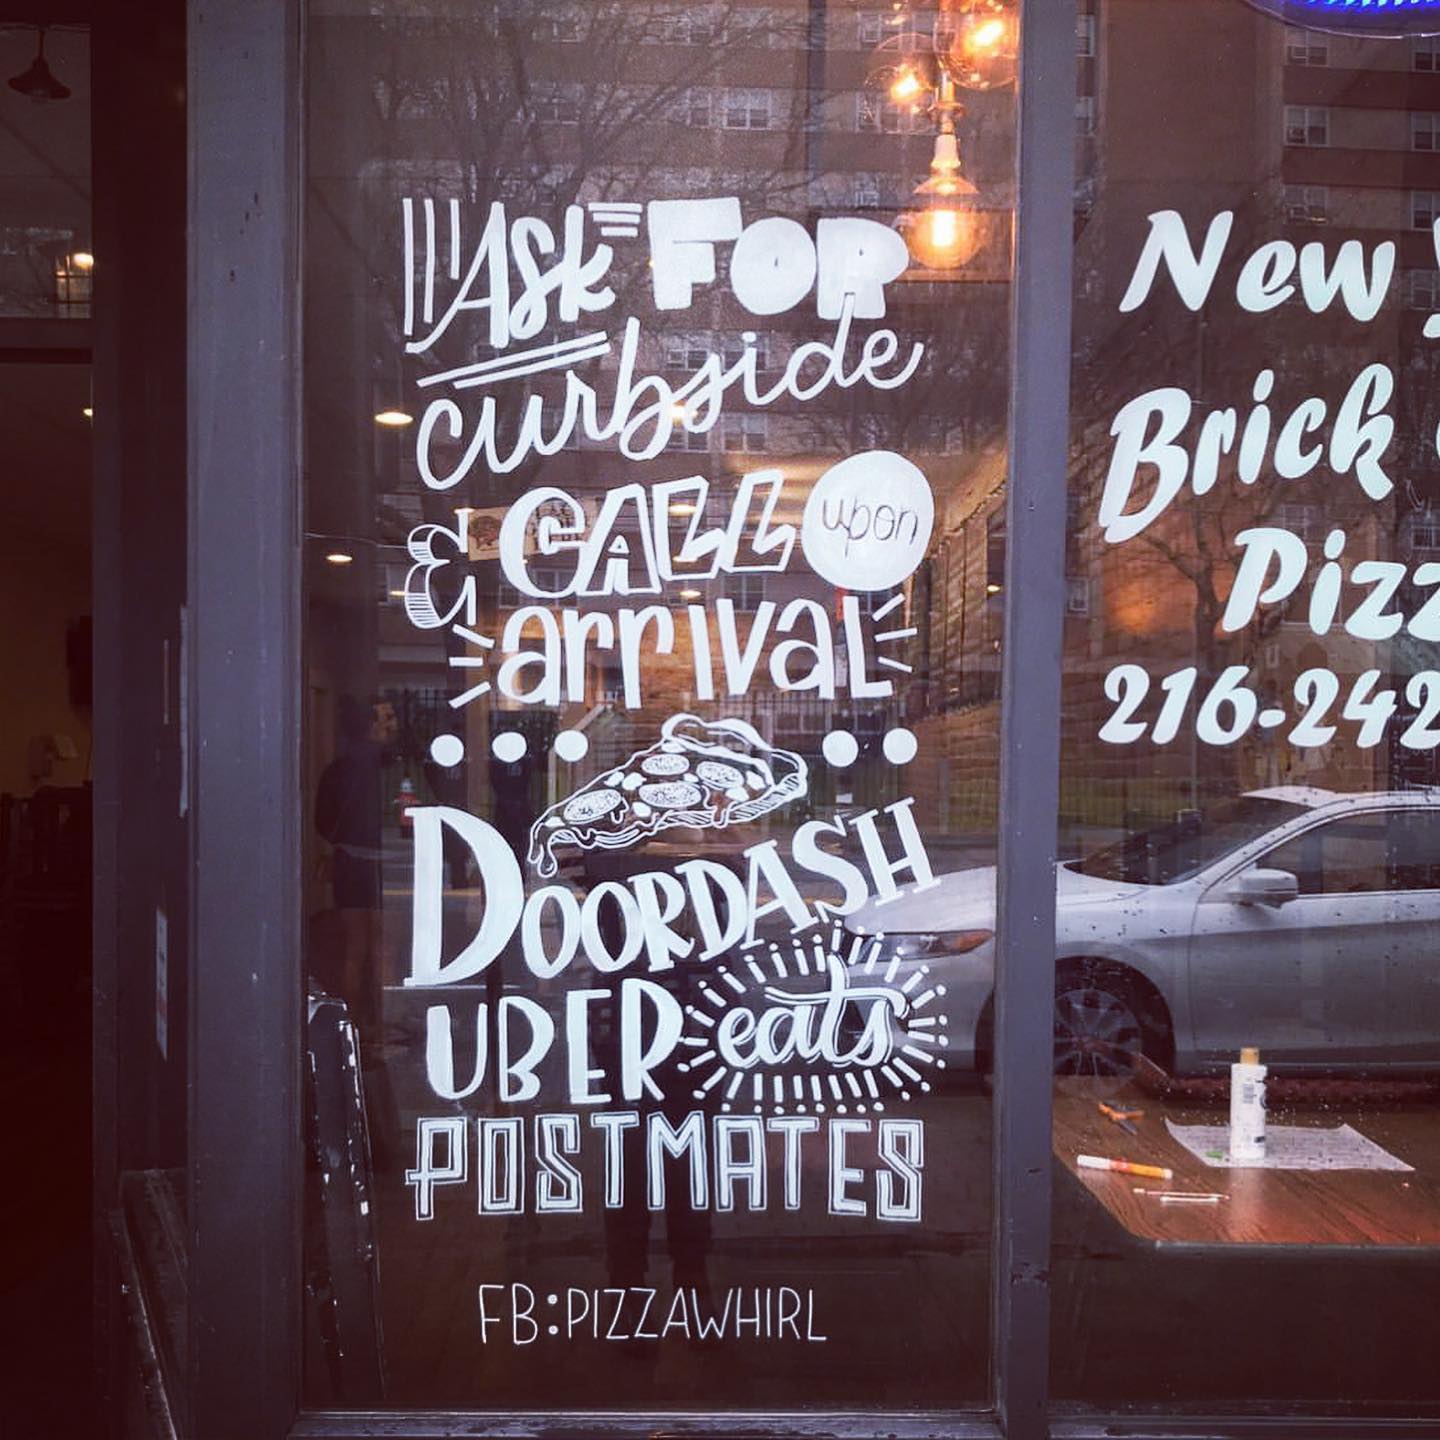 Ask FOR
curbside
& CALL upon
arrival
DOORDASH
UBER eats
POSTMATES
FB:PIZZAWHIRL
New
Brick
Pizz
216-242